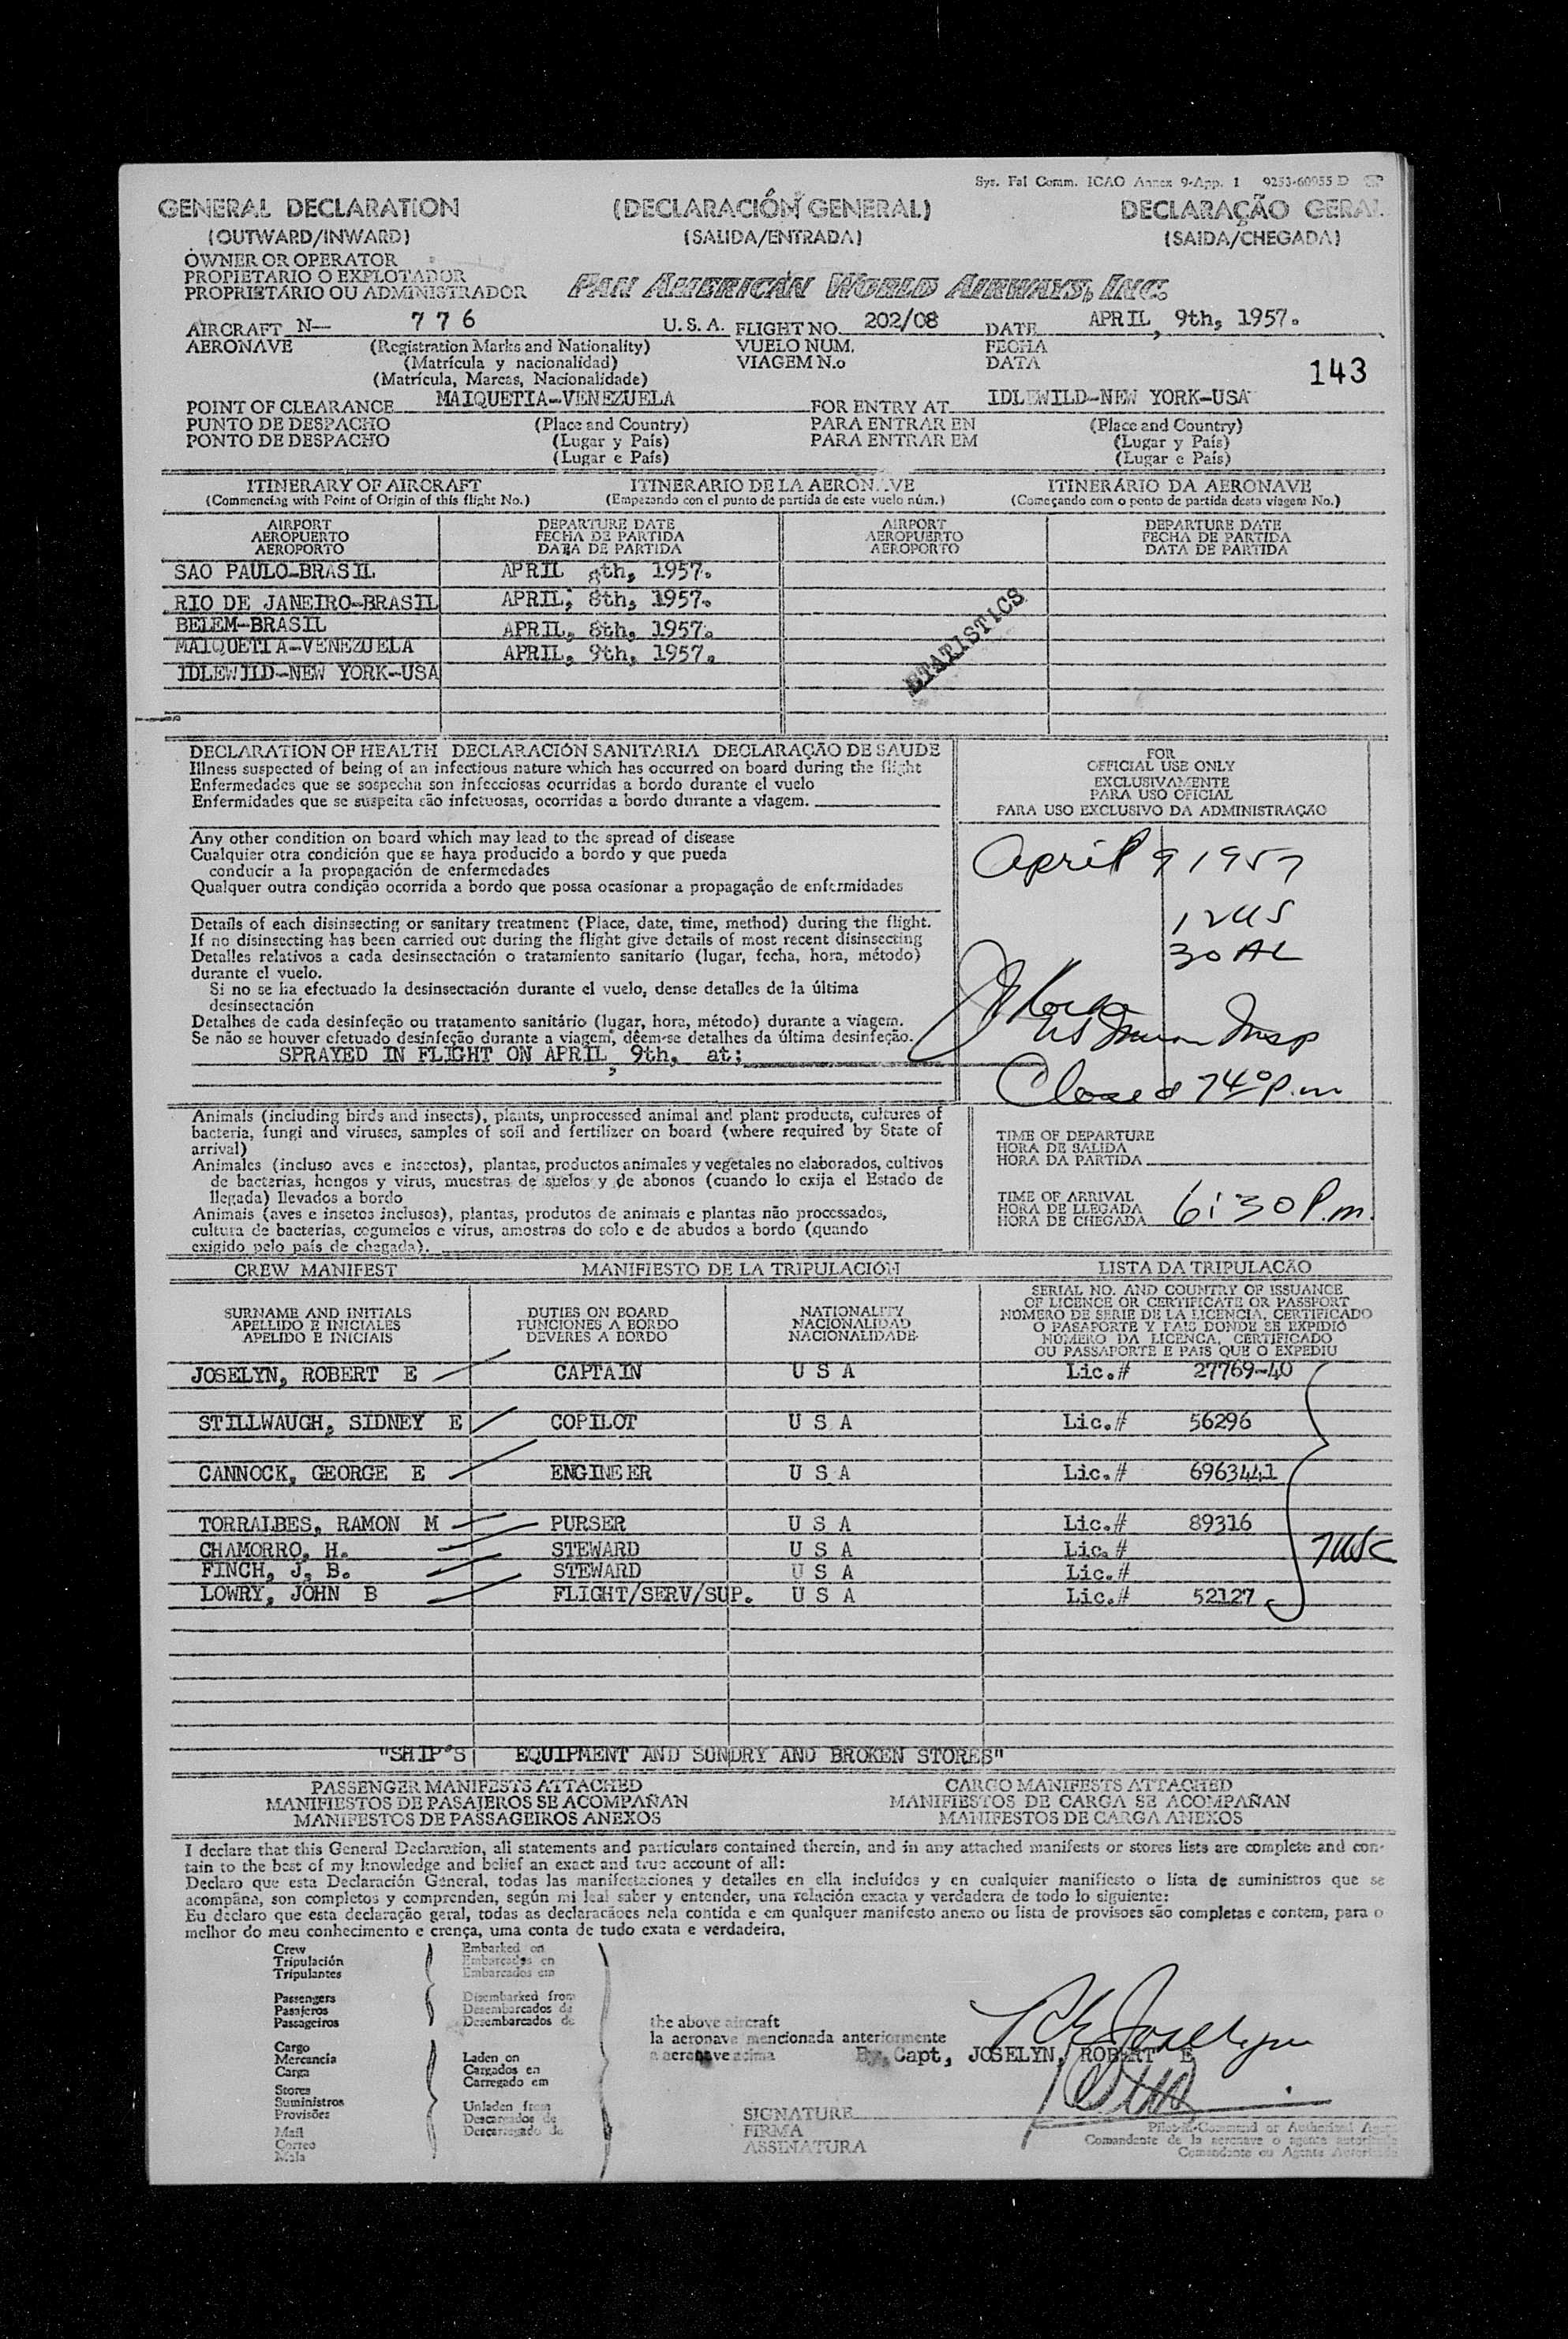 Sys. Fal Comm. ICAO Annex 9-App. 1 9253-60055 D
GENERAL DECLARATION (DECLARACIÓN GENERAL) DECLARAÇÃO GERAL
(OUTWARD/INWARD) (SALIDA/ENTRADA) (SAIDA/CHEGADA)
OWNER OR OPERATOR
PROPIETARIO O EXPLOTADOR
PROPRIETÁRIO OU ADMINISTRADOR PAN AMERICAN WORLD AIRWAYS, INC.
AIRCRAFT N— 776 U.S.A. FLIGHT NO. 202/08 DATE APRIL, 9th, 1957.
AERONAVE (Registration Marks and Nationality) VUELO NUM. FECHA
(Matrícula y nacionalidad) VIAGEM N.o DATA
(Matrícula, Marcas, Nacionalidade) 143
POINT OF CLEARANCE MAIQUETIA-VENEZUELA FOR ENTRY AT IDLEWILD-NEW YORK-USA
PUNTO DE DESPACHO (Place and Country) PARA ENTRAR EN (Place and Country)
PONTO DE DESPACHO (Lugar y País) PARA ENTRAR EM (Lugar y País)
(Lugar e País) (Lugar e País)
ITINERARY OF AIRCRAFT ITINERARIO DE LA AERONAVE ITINERÁRIO DA AERONAVE
(Commencing with Point of Origin of this flight No.) (Empezando con el punto de partida de este vuelo núm.) (Começando com o ponto de partida desta viagem No.)
AIRPORT DEPARTURE DATE AIRPORT DEPARTURE DATE
AEROPUERTO FECHA DE PARTIDA AEROPUERTO FECHA DE PARTIDA
AEROPORTO DATA DE PARTIDA AEROPORTO DATA DE PARTIDA
SAO PAULO-BRASIL APRIL 8th, 1957.
RIO DE JANEIRO-BRASIL APRIL, 8th, 1957.
BELEM-BRASIL APRIL, 8th, 1957.
MAIQUETIA-VENEZUELA APRIL, 9th, 1957.
IDLEWILD-NEW YORK-USA
STATISTICS
DECLARATION OF HEALTH DECLARACIÓN SANITARIA DECLARAÇÃO DE SAUDE
Illness suspected of being of an infectious nature which has occurred on board during the flight
Enfermedades que se sospecha son infecciosas ocurridas a bordo durante el vuelo
Enfermidades que se suspeita são infetuosas, ocorridas a bordo durante a viagem.
Any other condition on board which may lead to the spread of disease
Cualquier otra condición que se haya producido a bordo y que pueda
conducir a la propagación de enfermedades
Qualquer outra condição ocorrida a bordo que possa ocasionar a propagação de enfermidades
Details of each disinsecting or sanitary treatment (Place, date, time, method) during the flight.
If no disinsecting has been carried out during the flight give details of most recent disinsecting
Detalles relativos a cada desinsectación o tratamiento sanitario (lugar, fecha, hora, método)
durante el vuelo.
Si no se ha efectuado la desinsectación durante el vuelo, dense detalles de la última
desinsectación
Detalhes de cada desinfeção ou tratamento sanitário (lugar, hora, método) durante a viagem.
Se não se houver efetuado desinfeção durante a viagem, dêem-se detalhes da última desinfeção.
SPRAYED IN FLIGHT ON APRIL, 9th, at;
FOR
OFFICIAL USE ONLY
EXCLUSIVAMENTE
PARA USO OFICIAL
PARA USO EXCLUSIVO DA ADMINISTRAÇÃO
April 9 1957
12 US
30 AL
US Insp
Closed 740 p.m
Animals (including birds and insects), plants, unprocessed animal and plant products, cultures of
bacteria, fungi and viruses, samples of soil and fertilizer on board (where required by State of
arrival)
Animales (incluso aves e insectos), plantas, productos animales y vegetales no elaborados, cultivos
de bacterias, hongos y virus, muestras de suelos y de abonos (cuando lo exija el Estado de
llegada) llevados a bordo
Animais (aves e insetos inclusos), plantas, produtos de animais e plantas não processados,
cultura de bacterias, cogumelos e virus, amostras do solo e de abudos a bordo (quando
exigido pelo país de chegada).
TIME OF DEPARTURE
HORA DE SALIDA
HORA DA PARTIDA
TIME OF ARRIVAL
HORA DE LLEGADA
HORA DE CHEGADA 6:30 P.m.
CREW MANIFEST MANIFIESTO DE LA TRIPULACIÓN LISTA DA TRIPULAÇÃO
SURNAME AND INITIALS DUTIES ON BOARD NATIONALITY SERIAL NO. AND COUNTRY OF ISSUANCE
APELLIDO E INICIALES FUNCIONES A BORDO NACIONALIDAD OF LICENCE OR CERTIFICATE OR PASSPORT
APELIDO E INICIAIS DEVERES A BORDO NACIONALIDADE NÚMERO DE SERIE DE LA LICENCIA, CERTIFICADO
O PASAPORTE Y PAIS DONDE SE EXPIDIÓ
NÚMERO DA LICENCA, CERTIFICADO
OU PASSAPORTE E PAIS QUE O EXPEDIU
JOSELYN, ROBERT E CAPTAIN U S A Lic.# 27769-40
STILLWAUGH, SIDNEY E COPILOT U S A Lic.# 56296
CANNOCK, GEORGE E ENGINEER U S A Lic.# 6963441
TORRALBES, RAMON M PURSER U S A Lic.# 89316
CHAMORRO, H. STEWARD U S A Lic.#
FINCH, J. B. STEWARD U S A Lic.#
LOWRY, JOHN B FLIGHT/SERV/SUP. U S A Lic.# 52127
7 USC
"SHIP'S EQUIPMENT AND SUNDRY AND BROKEN STORES"
PASSENGER MANIFESTS ATTACHED CARGO MANIFESTS ATTACHED
MANIFIESTOS DE PASAJEROS SE ACOMPAÑAN MANIFIESTOS DE CARGA SE ACOMPAÑAN
MANIFESTOS DE PASSAGEIROS ANEXOS MANIFESTOS DE CARGA ANEXOS
I declare that this General Declaration, all statements and particulars contained therein, and in any attached manifests or stores lists are complete and con-
tain to the best of my knowledge and belief an exact and true account of all:
Declaro que esta Declaración General, todas las manifestaciones y detalles en ella incluídos y en cualquier manifiesto o lista de suministros que se
acompãna, son completos y comprenden, según mi leal saber y entender, una relación exacta y verdadera de todo lo siguiente:
Eu declaro que esta declaração geral, todas as declaracãoes nela contida e em qualquer manifesto anexo ou lista de provisoes são completas e contem, para o
melhor do meu conhecimento e crença, uma conta de tudo exata e verdadeira.
Crew Embarked on
Tripulación Embarcados en
Tripulantes Embarcados em
Passengers Disembarked from
Pasajeros Desembarcados de
Passageiros Desembarcados de
Cargo
Mercancía Laden on
Carga Cargados en
Carregado em
Stores
Suministros Unladen from
Provisões Descargados de
Mail Descarregado de
Correo
Mala
the above aircraft
la aeronave mencionada anteriormente
a aeronave acima By, Capt, JOSELYN, ROBERT E
R E Joselyn
SIGNATURE
FIRMA
ASSINATURA
Pilot-in-Command or Authorized Agent
Comandante de la aeronave o agente autorizado
Comandante ou Agente Autorizado